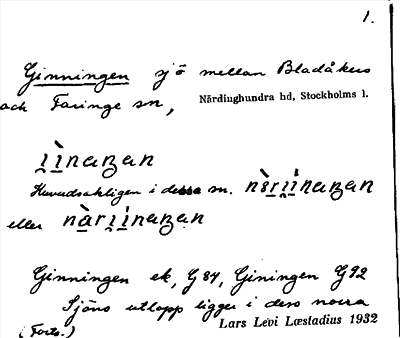 1.
Ginningen sjö mellan Bladåkers
och Faringe sn,
Närdinghundra hd, Stockholms l.
Huvudsakligen i dessa sn.
eller
Ginningen ek, G 84, Giningen G92
Sjöns utlopp ligger i dess norra
(Forts.)
Lars Levi Læstadius 1932